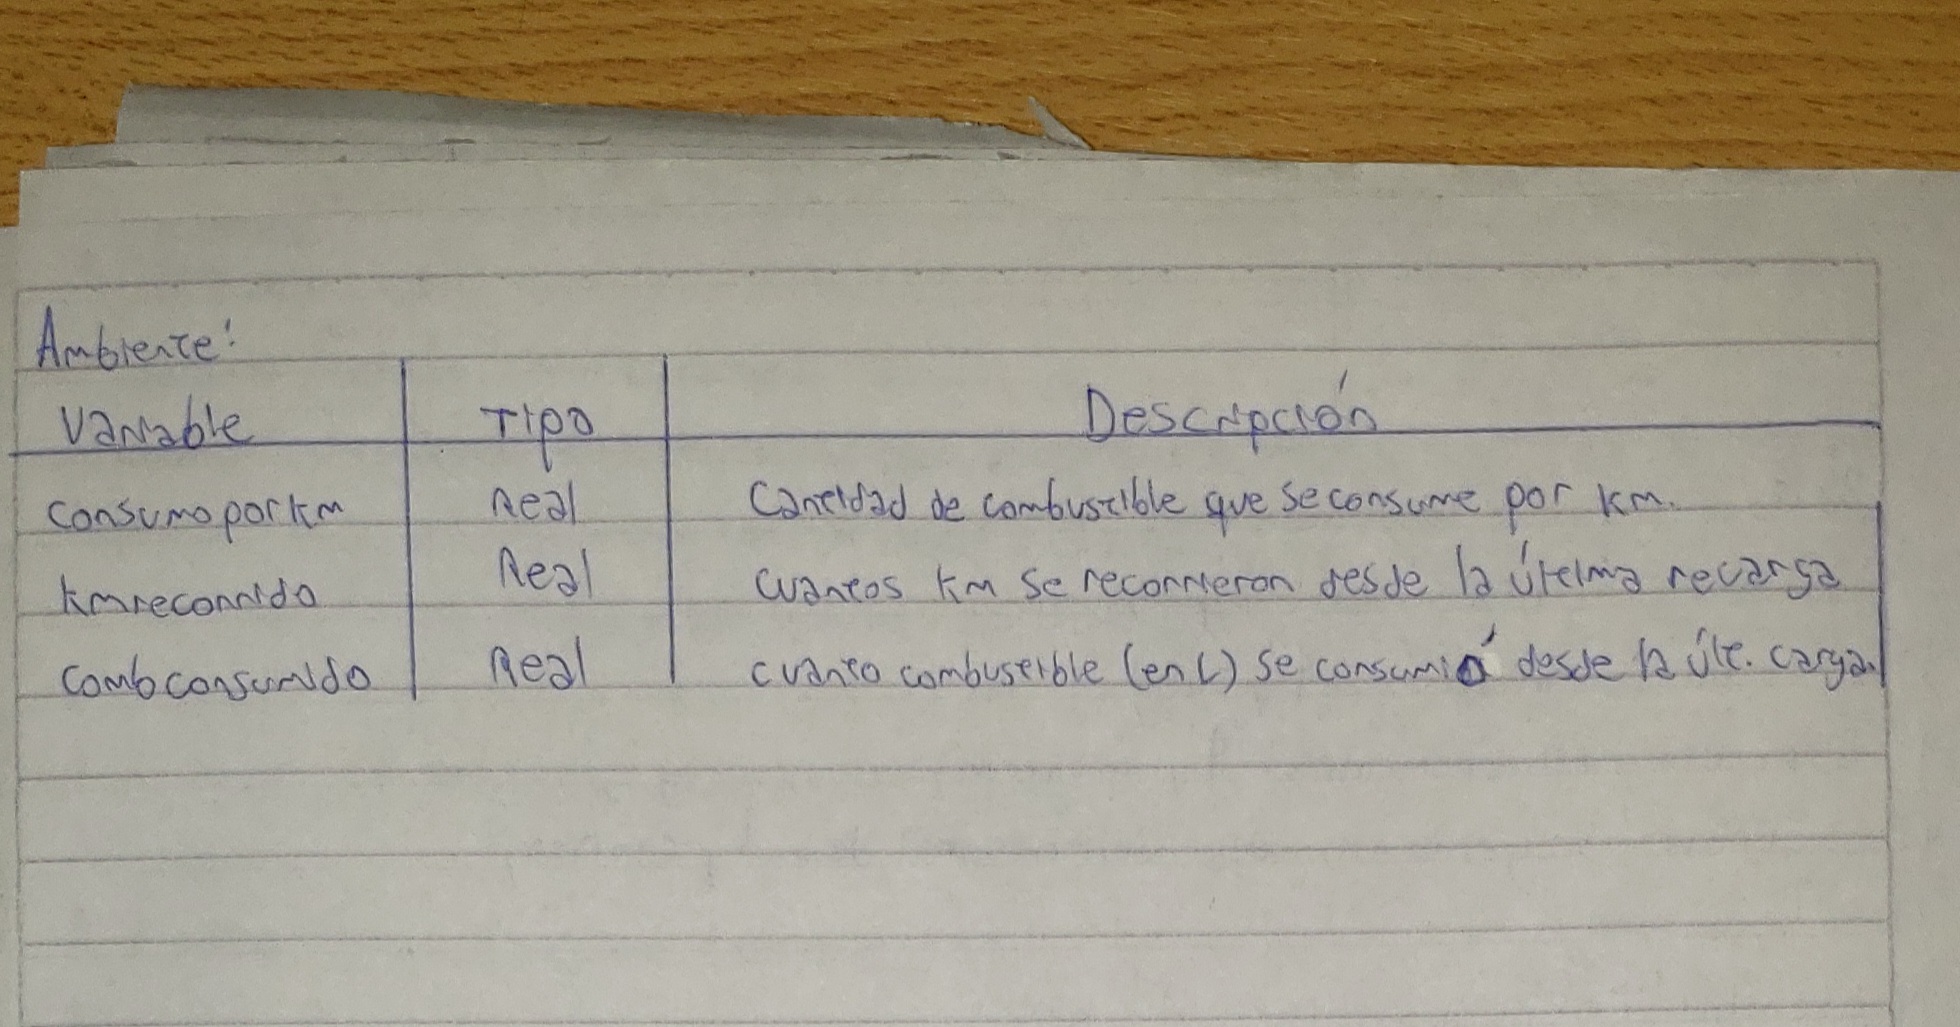 Ambiente:
Variable Tipo Descripción
consumoporkm Real Cantidad de combustible que se consume por km.
kmrecorrido Real cuantos km se recorrieron desde la última recarga
combconsumido Real cuanto combustible (en L) se consumió desde la últ. carga.